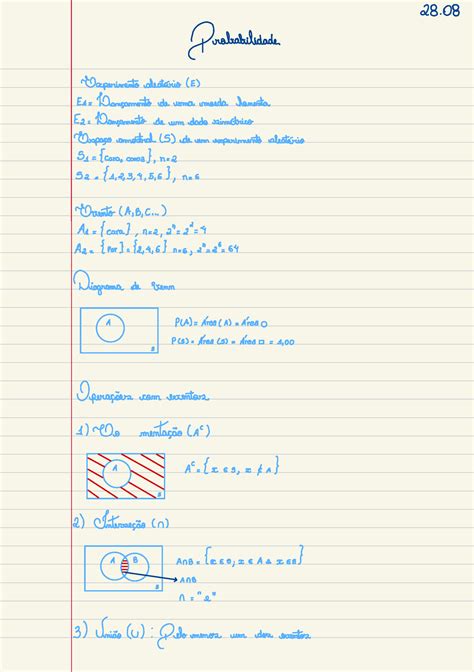 28.08
Probabilidade
Experimento aleatório (E)
E1 = Lançamento de uma moeda honesta
E2 = Lançamento de um dado simétrico
Espaço amostral (S) de um experimento aleatório
S1 = {cara, coroa}, n=2
S2 = {1,2,3,4,5,6}, n=6
Evento (A,B,C...)
A1 = {cara}, n=2, 2ⁿ=2²=4
A2 = {Par} = {2,4,6} n=6, 2ⁿ=2⁶=64
Diagrama de Venn
A
S
P(A) = Área (A) = Área ○
P(S) = Área (S) = Área □ = 1,00
Operações com eventos
1) mentação (Aᶜ)
A
S
Aᶜ = {x ∈ S, x ∉ A}
2) Interseção (∩)
A B
S
A∩B = {x ∈ S, x ∈ A & x ∈ B}
A∩B
∩ = "e"
3) União (U) : Pelo menos um dos eventos